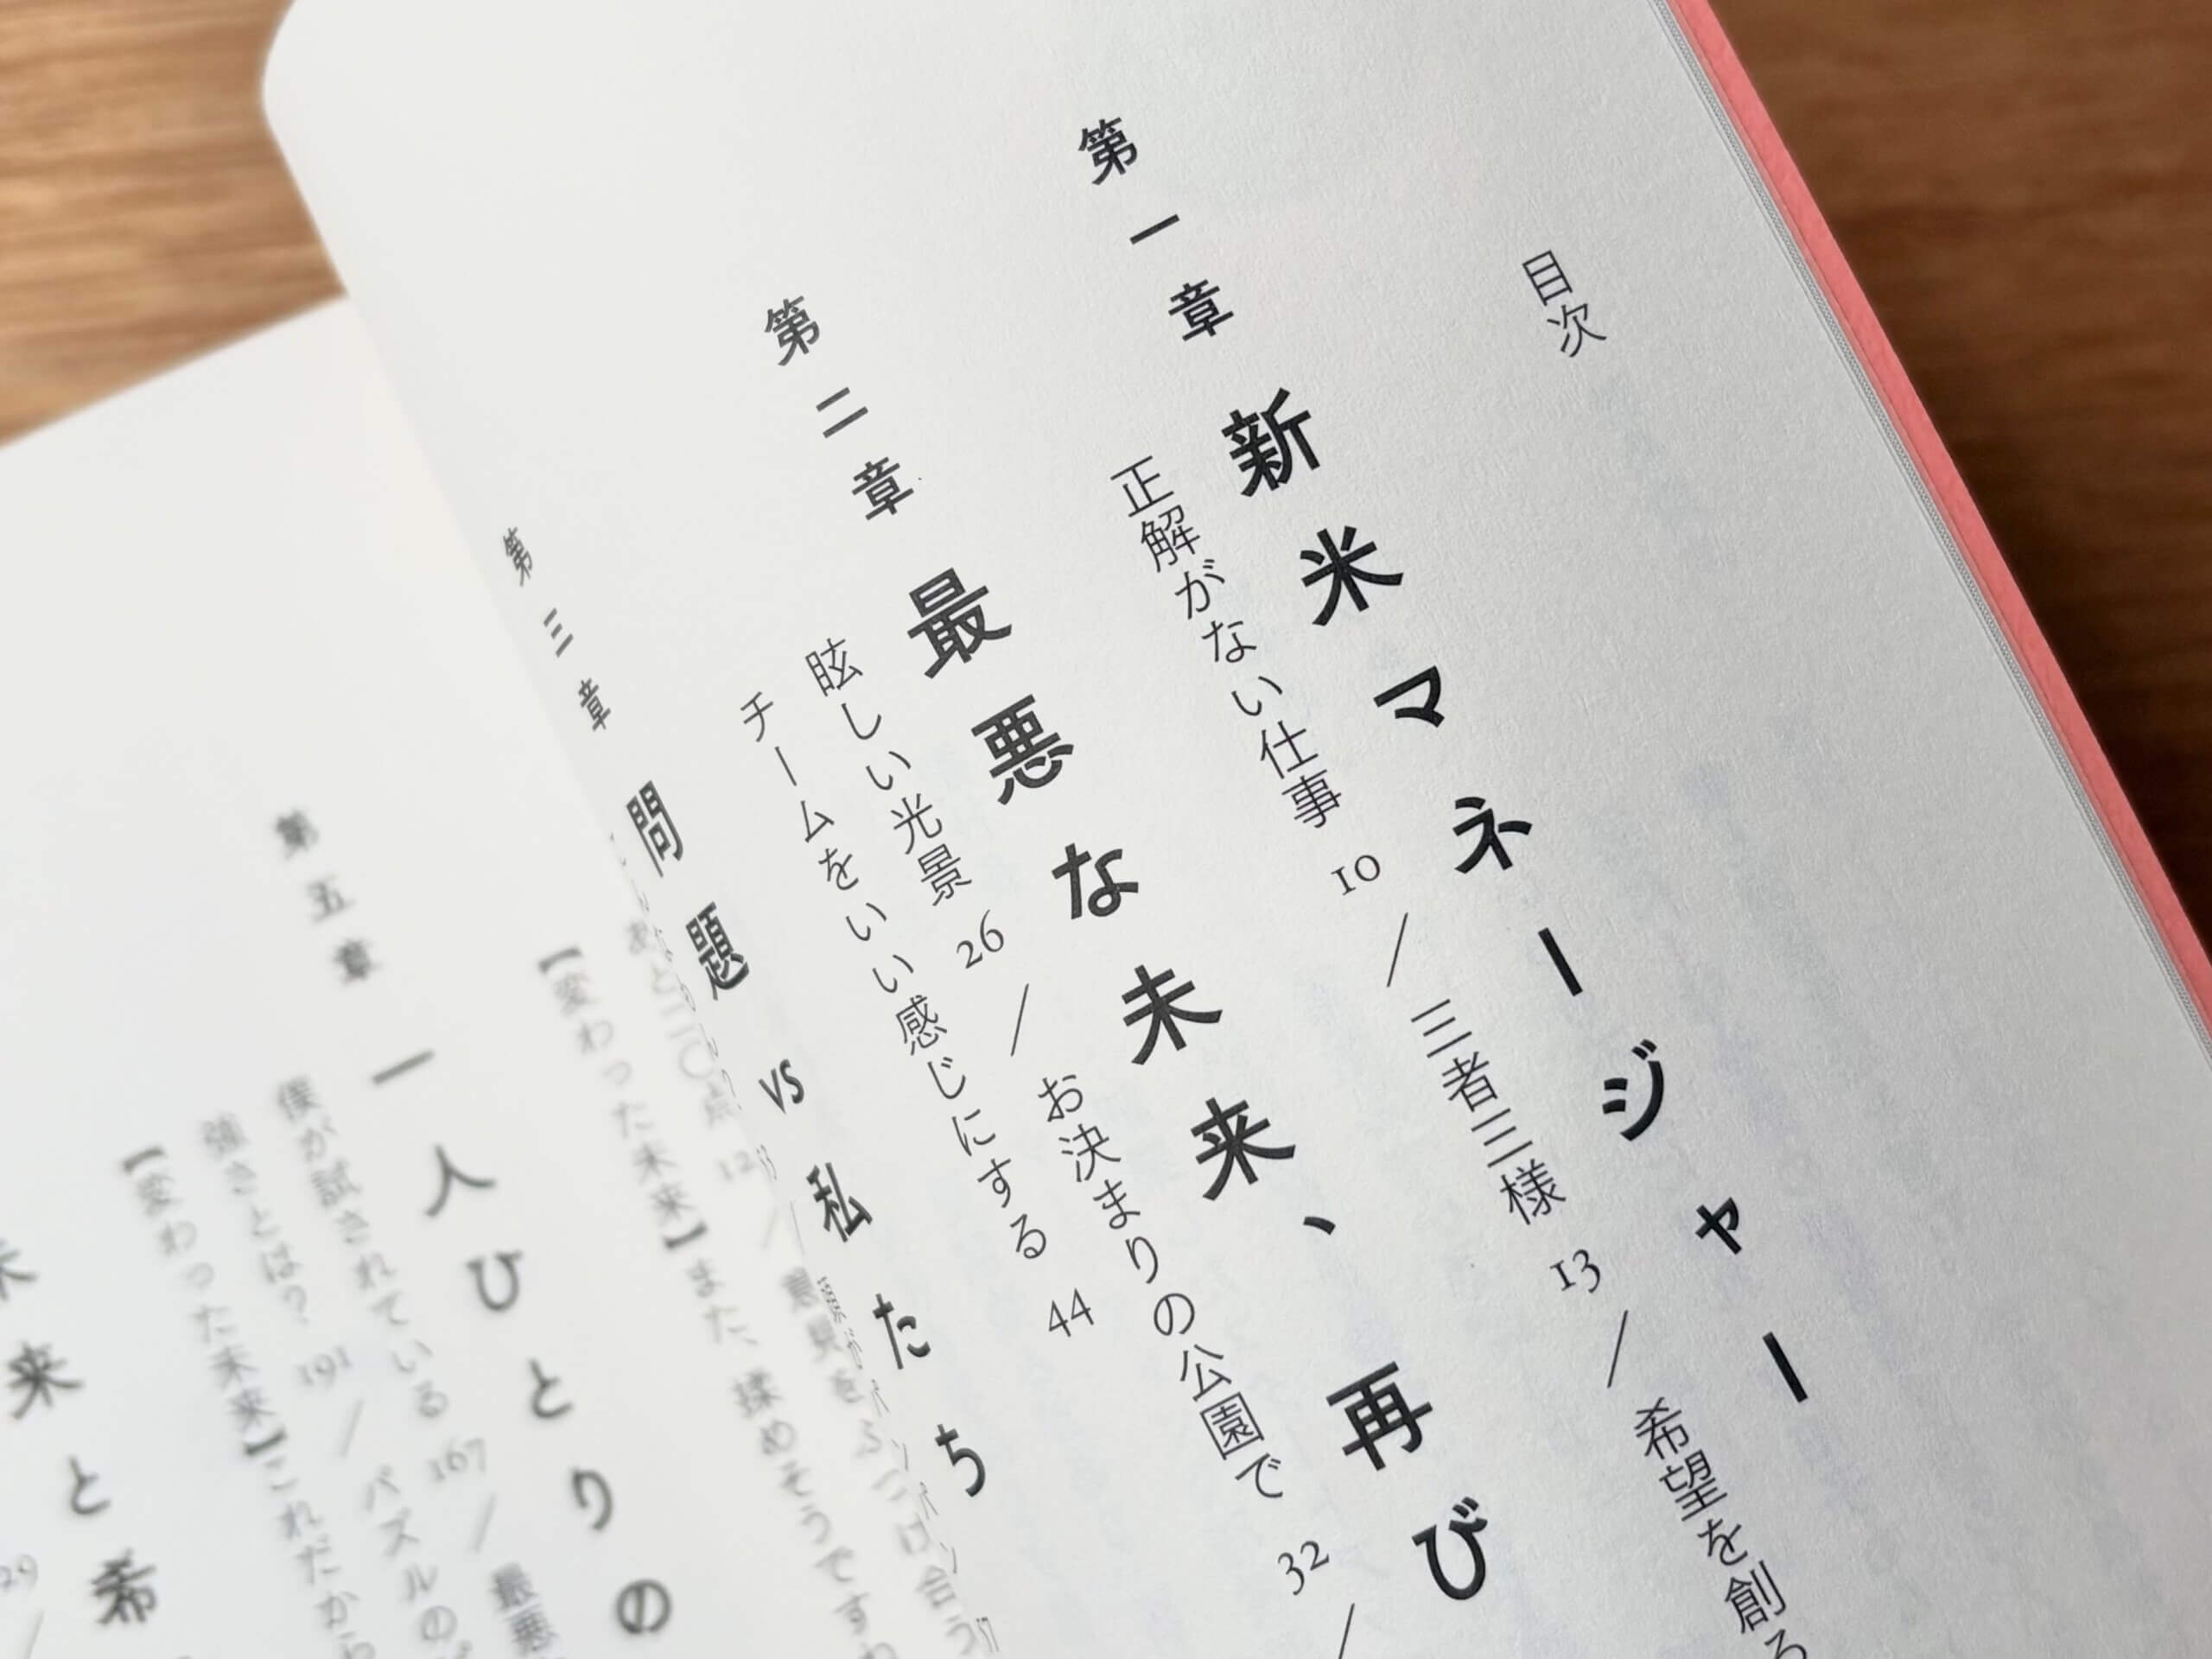 目次
第一章 新米マネージャー
正解がない仕事 10 / 三者三様 13 / 希望を創る
第二章 最悪な未来、再び
眩しい光景 26 / お決まりの公園で 32 /
チームをいい感じにする 44
第三章 問題 vs 私たち
【変わった未来】また、揉めそうですわ
第五章 一人ひとりの
僕が試されている 167 / 最悪
強さとは? 191 / パズルの
【変わった未来】これだから
未来と希